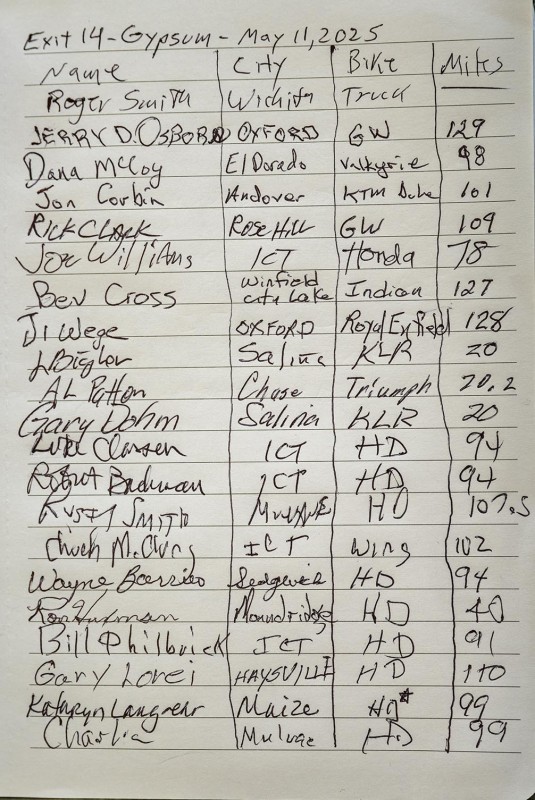 Exit 14 - Gypsum - May 11, 2025
Name City Bike Miles
Roger Smith Wichita Truck
JERRY D. OSBORN OXFORD GW 129
Dana McCoy El Dorado Valkyrie 98
Jon Corbin Andover KTM Duke 101
RICK CLARK ROSE HILL GW 109
Joe Williams ICT Honda 78
Bev Cross Winfield City Lake Indian 127
JJ Wege OXFORD Royal Enfield 128
Salina KLR 20
AL Patton Chase Triumph 70.2
Gary Dohm Salina KLR 20
Luke Clansen ICT HD 94
Robert ICT HD 94
Rusty SMITH Mulvane HD 107.5
Chuck McClung ICT Wing 102
Wayne Sedgwick HD 94
Ron Moundridge HD 40
Bill Philbrick ICT HD 91
Gary Lorei HAYSVILLE HD 110
Kathryn Langrehr Maize HD* 99
Charlie Mulvae HD 99